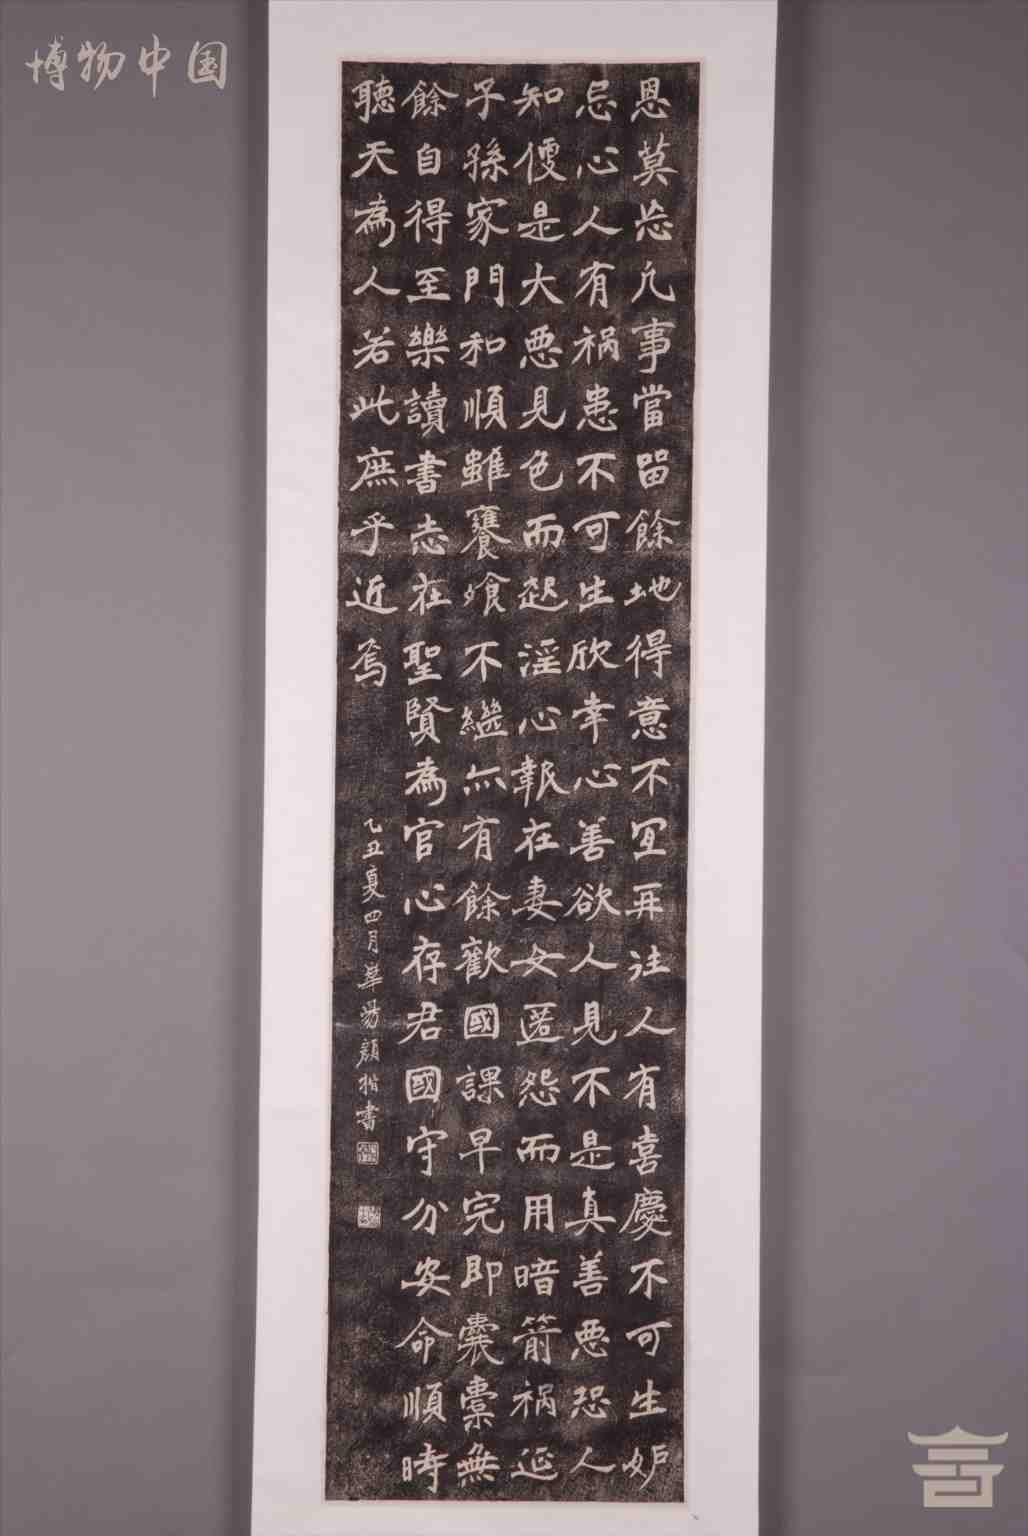 博物中国
恩莫忘凡事當留餘地得意不宜再往人有喜慶不可生妒
忌心人有禍患不可生欣幸心善欲人見不是真善惡恐人
知便是大惡見色而起淫心報在妻女匿怨而用暗箭禍延
子孫家門和順雖饔飧不繼亦有餘歡國課早完即囊橐無
餘自得至樂讀書志在聖賢為官心存君國守分安命順時
聽天為人若此庶乎近焉
乙丑夏四月華陽顏楷書